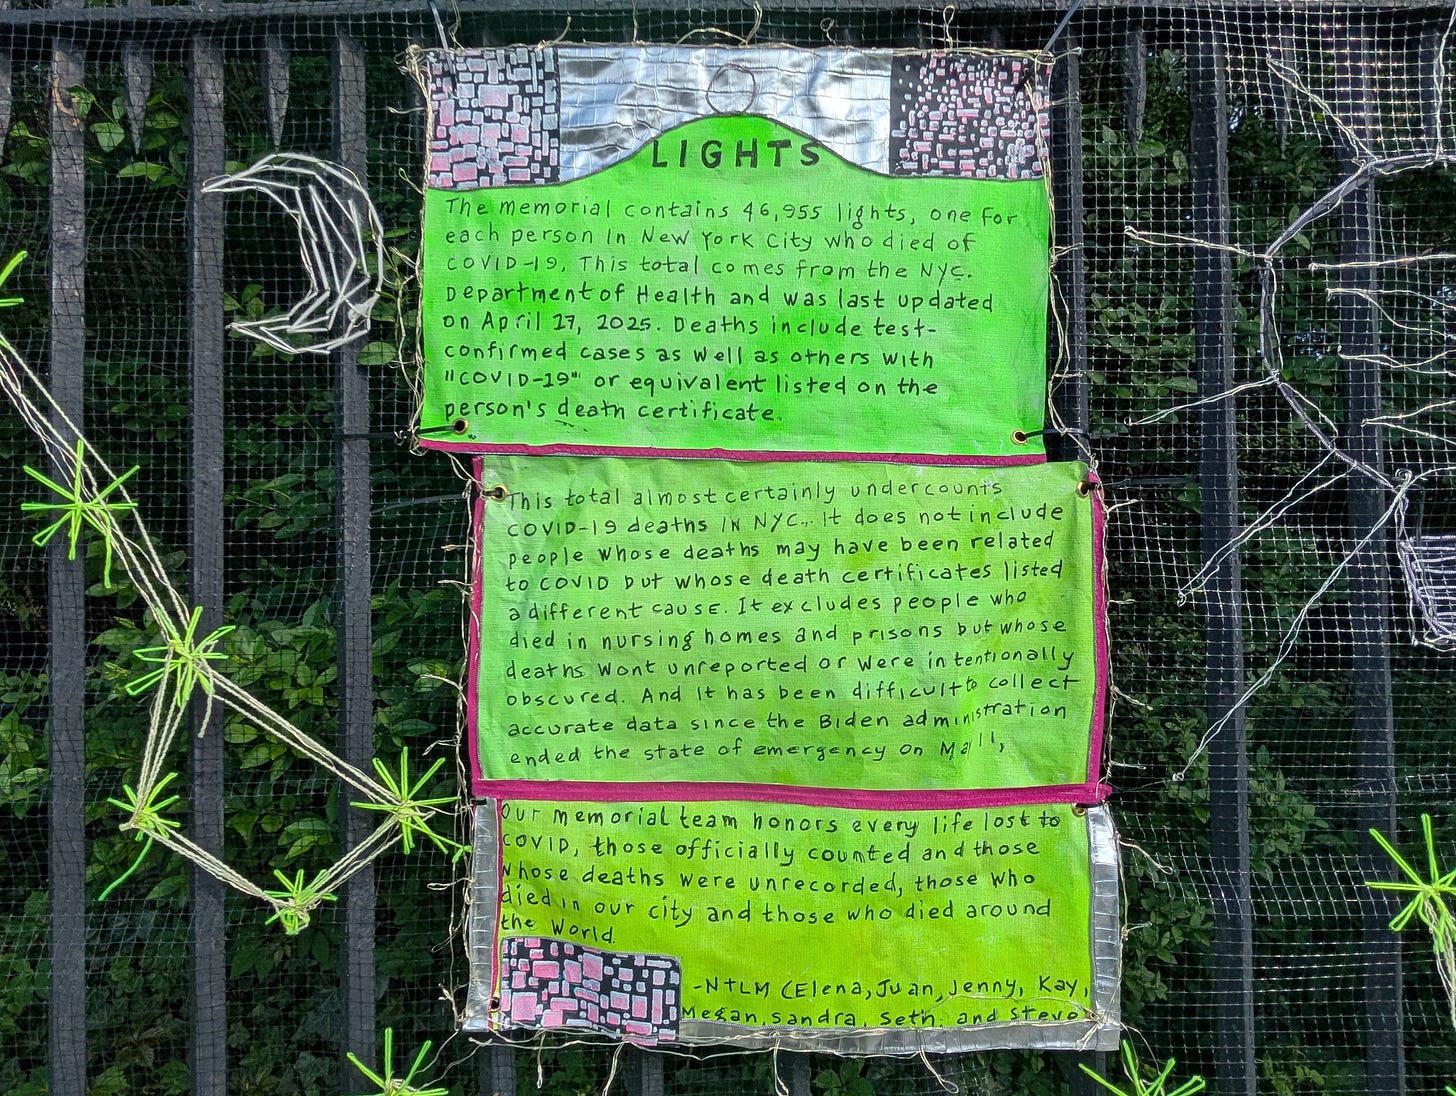 LIGHTS
The memorial contains 46,955 lights, one for
each person in New York City who died of
COVID-19. This total comes from the NYC.
Department of Health and was last updated
on April 17, 2025. Deaths include test-
confirmed cases as well as others with
"COVID-19" or equivalent listed on the
person's death certificate.
This total almost certainly undercounts
COVID-19 deaths in NYC. It does not include
people whose deaths may have been related
to COVID but whose death certificates listed
a different cause. It excludes people who
died in nursing homes and prisons but whose
deaths wont unreported or were intentionally
obscured. And it has been difficult to collect
accurate data since the Biden administration
ended the state of emergency on May 11,
Our memorial team honors every life lost to
COVID, those officially counted and those
whose deaths were unrecorded, those who
died in our city and those who died around
the world.
-NTLM (Elena, Juan, Jenny, Kay,
Megan, Sandra, Seth, and Steve